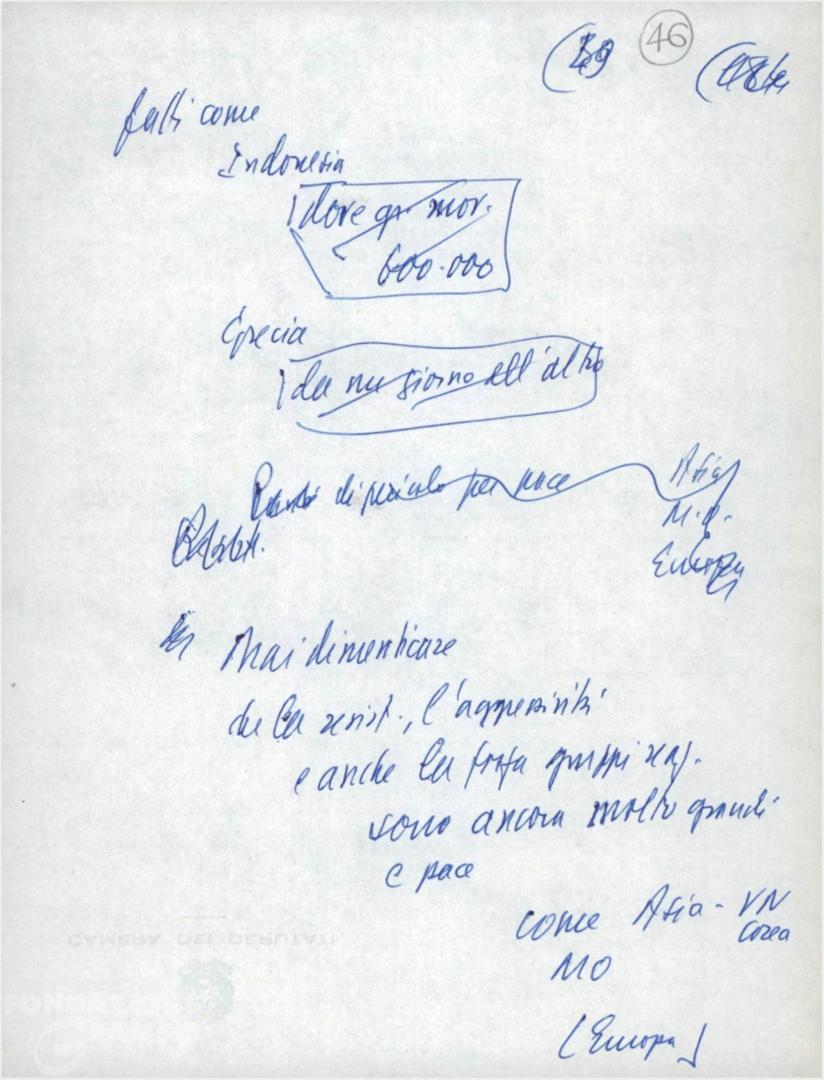 46
fatti come
Indonesia
dove gr. mor.
600.000
Grecia
da un giorno all'altro
Punti di pericolo per pace Asia
M.O.
Europa
Mai dimenticare
che la resist., l'aggressività
e anche la forza gruppi reaz.
sono ancora molto grandi
e pace
come Asia - VN
Corea
MO
(Europa)
CAMERA DEI DEPUTATI